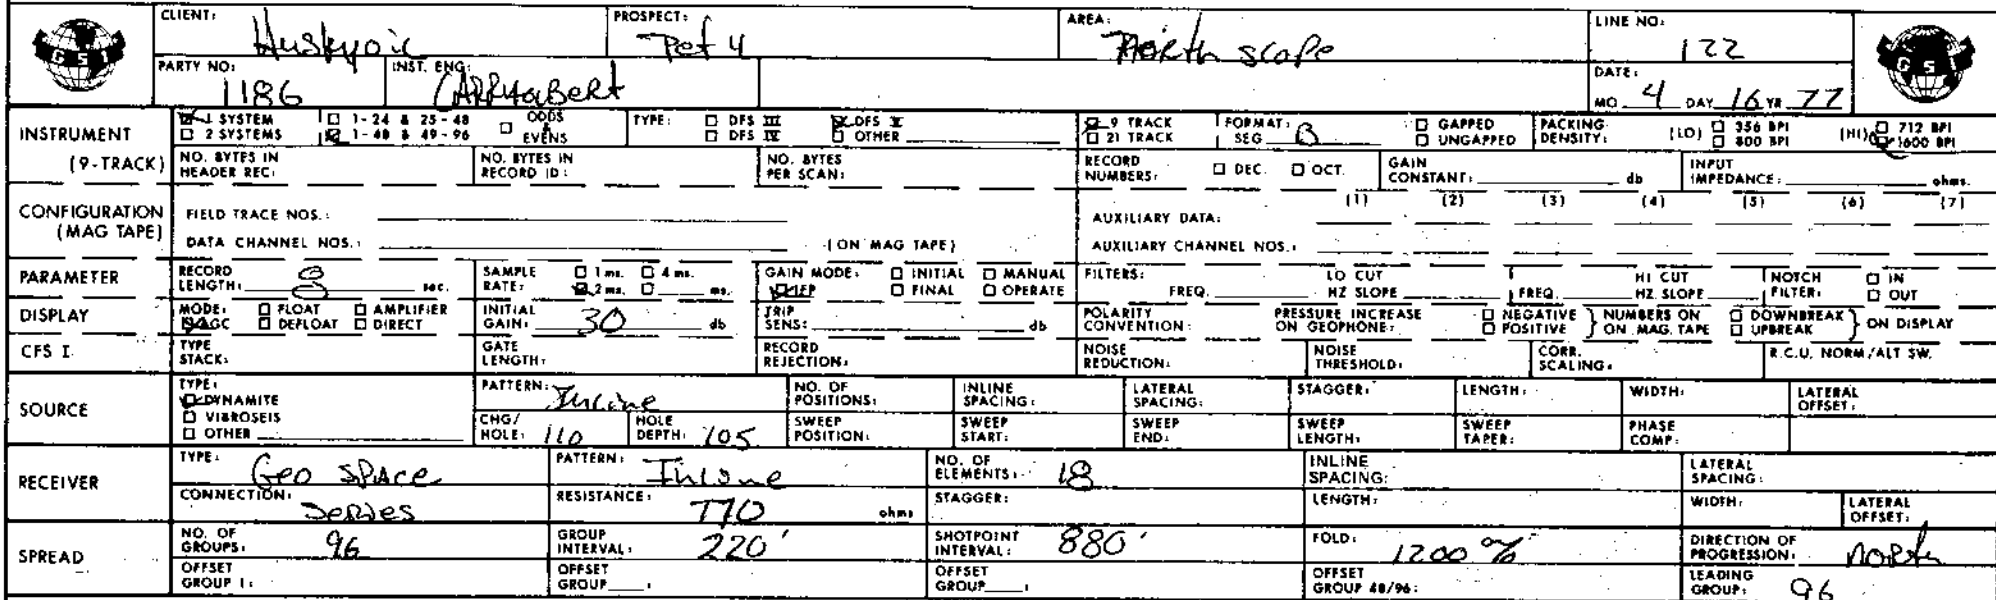 CLIENT: Huskyoil PROSPECT: Pet 4 AREA: North slope LINE NO: 122
GSI GSI
PARTY NO: 1186 INST. ENG: DATE: MO. 4 DAY 16 YR. 77
INSTRUMENT (9-TRACK)
1 SYSTEM 1-24 & 25-48 ODDS & EVENS TYPE: DFS III DFS V 9 TRACK FORMAT: GAPPED PACKING DENSITY: (LO) 356 BPI (HI) 712 BPI
2 SYSTEMS 1-48 & 49-96 DFS IV OTHER 21 TRACK SEG B UNGAPPED 800 BPI 1600 BPI
NO. BYTES IN HEADER REC: NO. BYTES IN RECORD ID: NO. BYTES PER SCAN: RECORD NUMBERS: DEC. OCT. GAIN CONSTANT: db INPUT IMPEDANCE: ohms.
CONFIGURATION (MAG TAPE)
FIELD TRACE NOS.: AUXILIARY DATA: (1) (2) (3) (4) (5) (6) (7)
DATA CHANNEL NOS.: (ON MAG TAPE) AUXILIARY CHANNEL NOS.:
PARAMETER RECORD LENGTH: 8 sec. SAMPLE RATE: 1 ms. 4 ms. 2 ms. ms. GAIN MODE: INITIAL MANUAL IFP FINAL OPERATE FILTERS: FREQ. LO CUT HZ SLOPE FREQ. HI CUT HZ SLOPE NOTCH FILTER: IN OUT
DISPLAY MODE: FLOAT AMPLIFIER AGC DEFLOAT DIRECT INITIAL GAIN: 30 db TRIP SENS: db POLARITY CONVENTION: PRESSURE INCREASE ON GEOPHONE: NEGATIVE POSITIVE } NUMBERS ON ON MAG. TAPE DOWNBREAK UPBREAK } ON DISPLAY
CFS I TYPE STACK: GATE LENGTH: RECORD REJECTION: NOISE REDUCTION: NOISE THRESHOLD: CORR. SCALING: R.C.U. NORM/ALT SW.
SOURCE TYPE: DYNAMITE VIBROSEIS OTHER PATTERN: Inline NO. OF POSITIONS: INLINE SPACING: LATERAL SPACING: STAGGER: LENGTH: WIDTH: LATERAL OFFSET:
CHG/ HOLE: 110 HOLE DEPTH: 105 SWEEP POSITION: SWEEP START: SWEEP END: SWEEP LENGTH: SWEEP TAPER: PHASE COMP:
RECEIVER TYPE: Geo Space PATTERN: Inline NO. OF ELEMENTS: 18 INLINE SPACING: LATERAL SPACING:
CONNECTION: Series RESISTANCE: 770 ohms STAGGER: LENGTH: WIDTH: LATERAL OFFSET:
SPREAD NO. OF GROUPS: 96 GROUP INTERVAL: 220' SHOTPOINT INTERVAL: 880' FOLD: 1200 % DIRECTION OF PROGRESSION: North
OFFSET GROUP 1: OFFSET GROUP : OFFSET GROUP : OFFSET GROUP 48/96: LEADING GROUP: 96